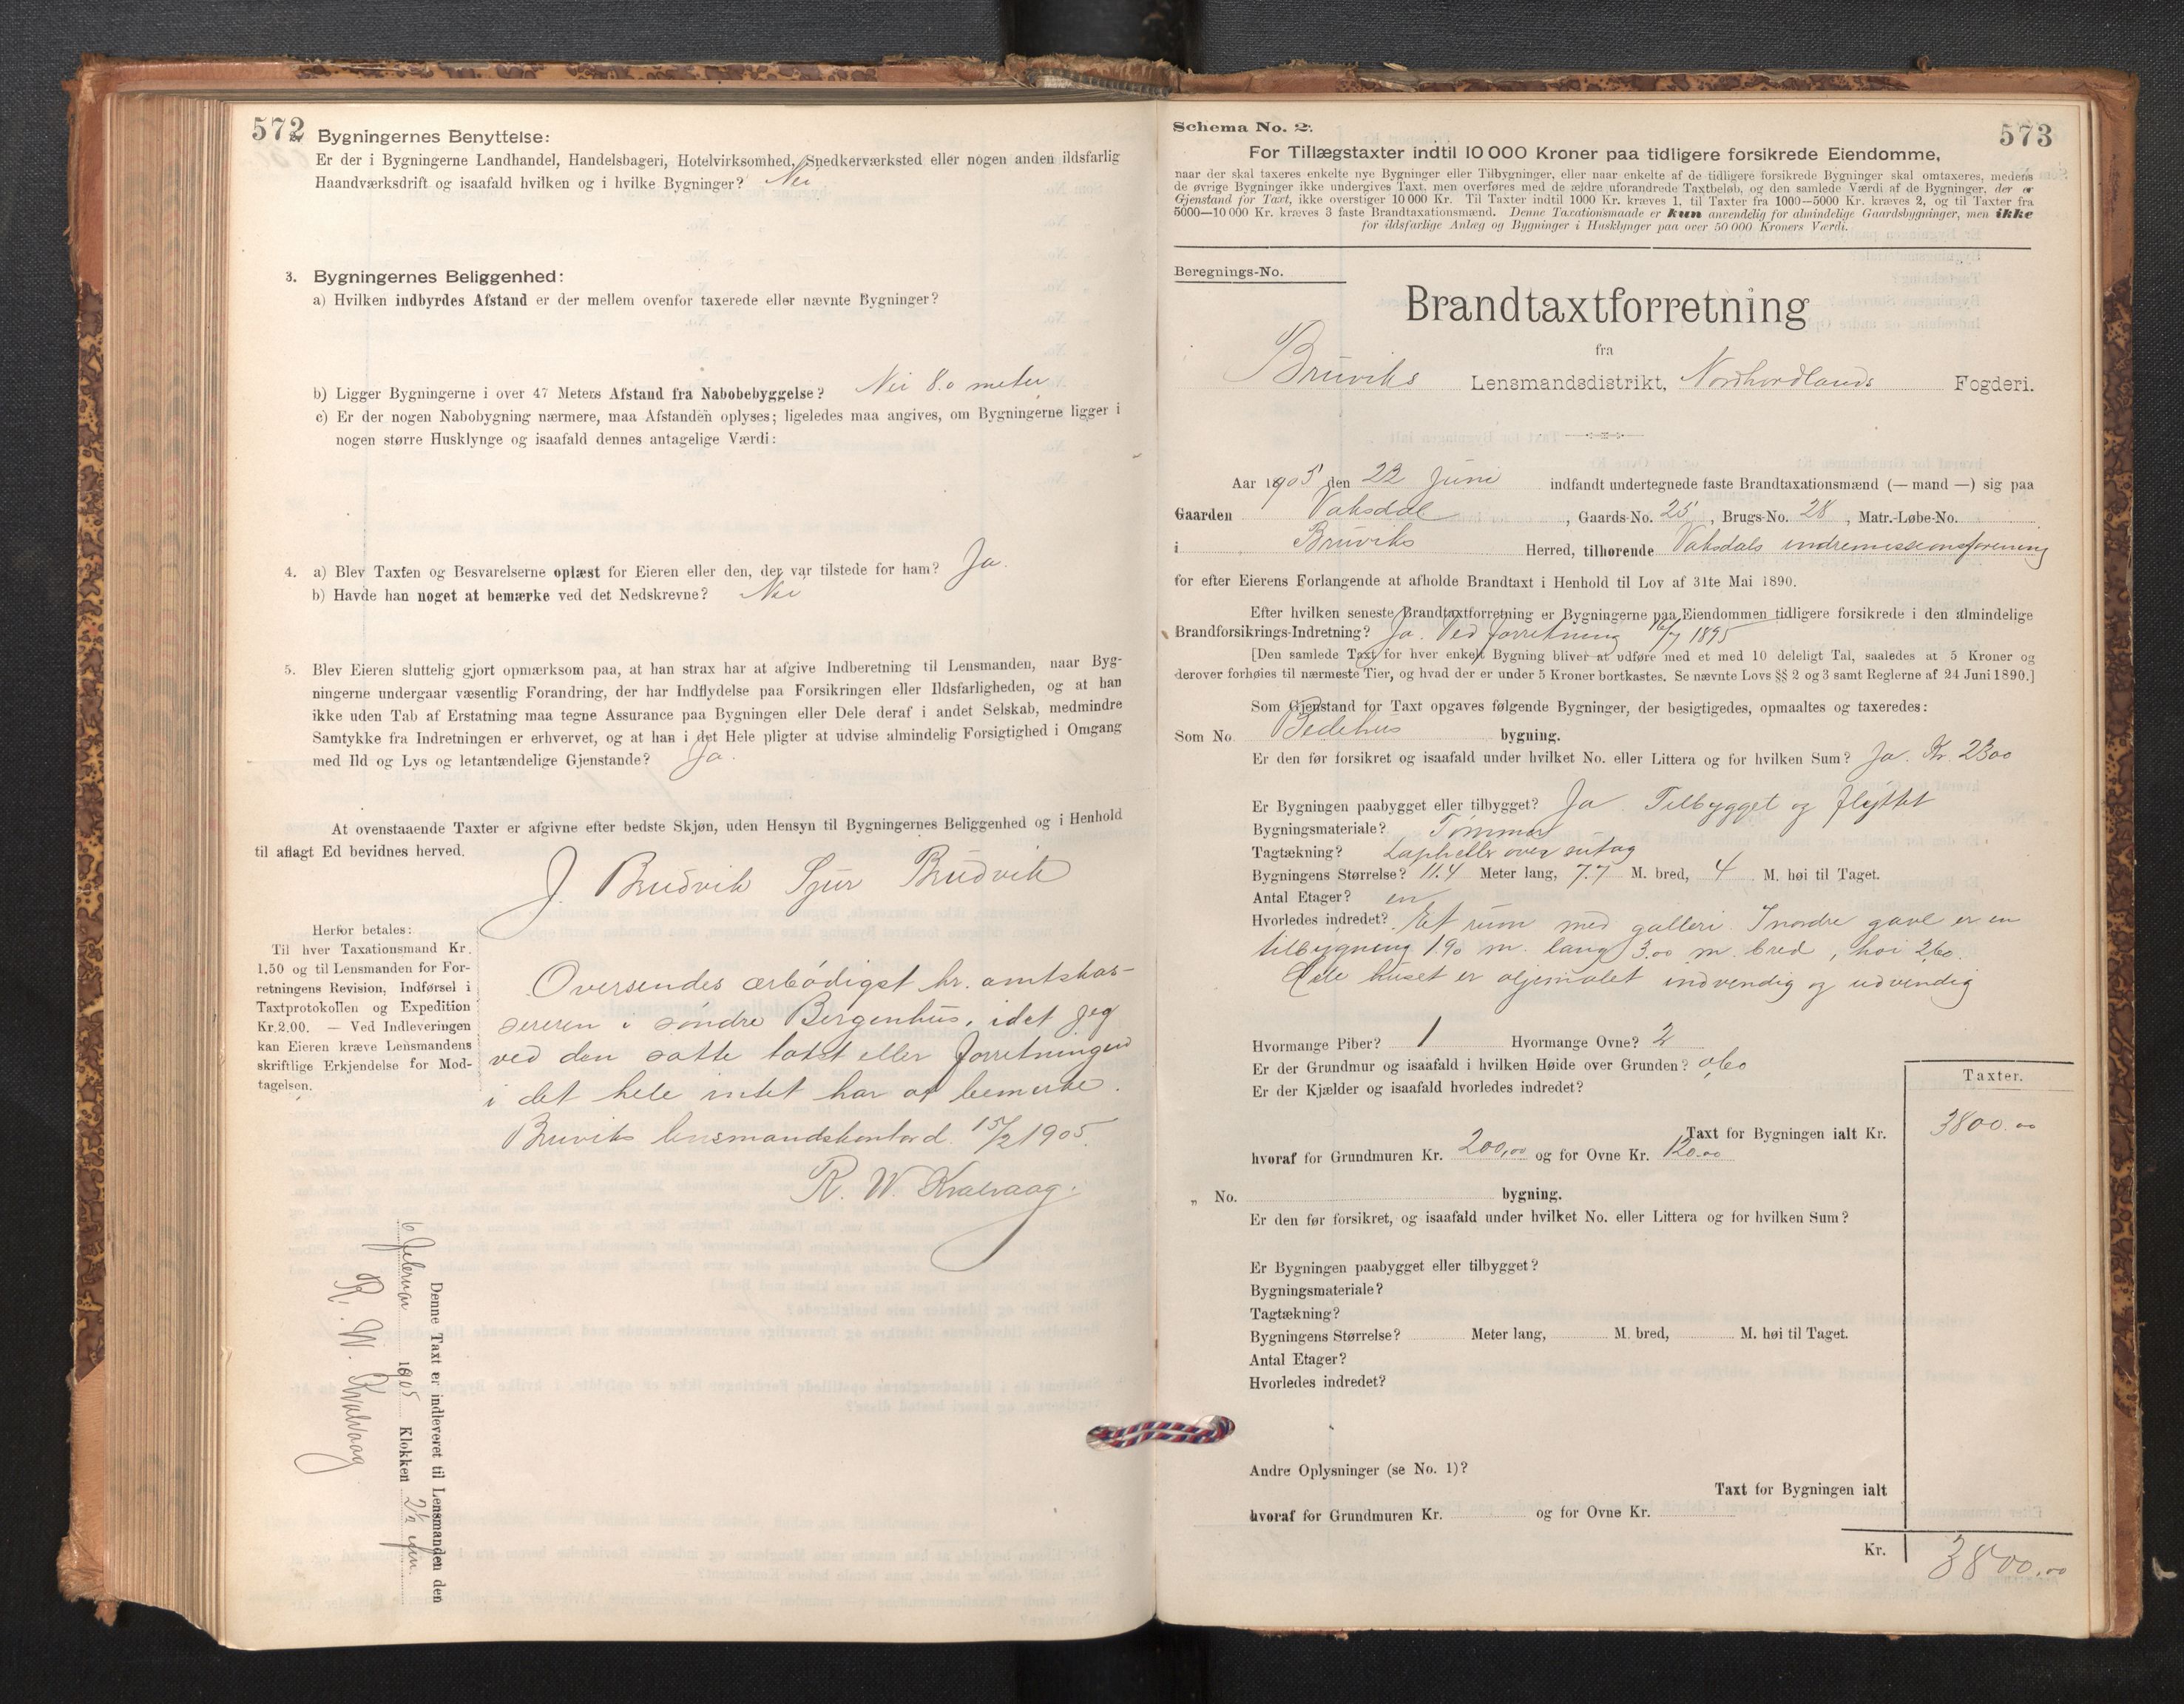 572
2. Bygningernes Benyttelse:
Er der i Bygningerne Landhandel, Handelsbageri, Hotelvirksomhed, Snedkerværksted eller nogen anden ildsfarlig
Haandværksdrift og isaafald hvilken og i hvilke Bygninger? Nei
3. Bygningernes Beliggenhed:
a) Hvilken indbyrdes Afstand er der mellem ovenfor taxerede eller nævnte Bygninger?
b) Ligger Bygningerne i over 47 Meters Afstand fra Nabobebyggelse? Nei 8.0 meter
c) Er der nogen Nabobygning nærmere, maa Afstanden oplyses; ligeledes maa angives, om Bygningerne ligger i
nogen større Husklynge og isaafald dennes antagelige Værdi:
4. a) Blev Taxten og Besvarelserne oplæst for Eieren eller den, der var tilstede for ham? Ja.
b) Havde han noget at bemærke ved det Nedskrevne? Nei
5. Blev Eieren sluttelig gjort opmærksom paa, at han strax har at afgive Indberetning til Lensmanden, naar Byg-
ningerne undergaar væsentlig Forandring, der har Indflydelse paa Forsikringen eller Ildsfarligheden, og at han
ikke uden Tab af Erstatning maa tegne Assurance paa Bygningen eller Dele deraf i andet Selskab, medmindre
Samtykke fra Indretningen er erhvervet, og at han i det Hele pligter at udvise almindelig Forsigtighed i Omgang
med Ild og Lys og letantændelige Gjenstande? Ja.
At ovenstaaende Taxter er afgivne efter bedste Skjøn, uden Hensyn til Bygningernes Beliggenhed og i Henhold
til aflagt Ed bevidnes herved.
J. Brudvik Sjur Brudvik
Herfor betales:
Til hver Taxationsmand Kr.
1.50 og til Lensmanden for For-
retningens Revision, Indførsel i
Taxtprotokollen og Expedition
Kr. 2.00. — Ved Indleveringen
kan Eieren kræve Lensmandens
skriftlige Erkjendelse for Mod-
tagelsen.
Oversendes ærbødigst hr. amtskas-
sereren i søndre Bergenhus, idet jeg
ved den satte takst eller forretningen
i det hele intet har at bemerke.
Bruviks lensmandskontor d. 15/2 1905.
R. W. Kvalvaag.
Denne Taxt er indleveret til Lensmanden den
6 februar 1905 Klokken 2½ em.
R. W. Kvalvaag
Schema No. 2.
573
For Tillægstaxter indtil 10 000 Kroner paa tidligere forsikrede Eiendomme,
naar der skal taxeres enkelte nye Bygninger eller Tilbygninger, eller naar enkelte af de tidligere forsikrede Bygninger skal omtaxeres, medens
de øvrige Bygninger ikke undergives Taxt, men overføres med de ældre uforandrede Taxtbeløb, og den samlede Værdi af de Bygninger, der er
Gjenstand for Taxt, ikke overstiger 10 000 Kr. Til Taxter indtil 1000 Kr. kræves 1, til Taxter fra 1000—5000 Kr. kræves 2, og til Taxter fra
5000—10 000 Kr. kræves 3 faste Brandtaxationsmænd. Denne Taxationsmaade er kun anvendelig for almindelige Gaardsbygninger, men ikke
for ildsfarlige Anlæg og Bygninger i Husklynger paa over 50 000 Kroners Værdi.
Beregnings-No.
Brandtaxtforretning
fra
Bruviks Lensmandsdistrikt, Nordhordlands Fogderi.
Aar 1905 den 22 Juni indfandt undertegnede faste Brandtaxationsmænd (— mand —) sig paa
Gaarden Vaksdal, Gaards-No. 25, Brugs-No. 28, Matr.-Løbe-No.
i Bruviks Herred, tilhørende Vaksdals indremissionsforening
for efter Eierens Forlangende at afholde Brandtaxt i Henhold til Lov af 31te Mai 1890.
Efter hvilken seneste Brandtaxtforretning er Bygningerne paa Eiendommen tidligere forsikrede i den almindelige
Brandforsikrings-Indretning? Ja. Ved forretning 16/7 1895
[Den samlede Taxt for hver enkelt Bygning bliver at udføre med et med 10 deleligt Tal, saaledes at 5 Kroner og
derover forhøies til nærmeste Tier, og hvad der er under 5 Kroner bortkastes. Se nævnte Lovs §§ 2 og 3 samt Reglerne af 24 Juni 1890.]
Som Gjenstand for Taxt opgaves følgende Bygninger, der besigtigedes, opmaaltes og taxeredes:
Som No. Bedehus bygning.
Er den før forsikret og isaafald under hvilket No. eller Littera og for hvilken Sum? Ja. Kr. 2300
Er Bygningen paabygget eller tilbygget? Ja. Tilbygget og flyttet
Bygningsmateriale? Tømmer
Tagtækning? Lapheller over sutag
Bygningens Størrelse? 11.4 Meter lang, 7.7 M. bred, 4 M. høi til Taget.
Antal Etager? en
Hvorledes indredet? Et rum med galleri. I nordre gavl er en
tilbygning 1.90 m. lang 3.00 m. bred, høi 2.60.
Hele huset er oljemalet indvendig og udvendig
Hvormange Piber? 1 Hvormange Ovne? 2
Er der Grundmur og isaafald i hvilken Høide over Grunden? 0,60
Er der Kjælder og isaafald hvorledes indredet?
Taxter.
Taxt for Bygningen ialt Kr. 3800.00
hvoraf for Grundmuren Kr. 200,00 og for Ovne Kr. 120.00
„ No. bygning.
Er den før forsikret, og isaafald under hvilket No. eller Littera og for hvilken Sum?
Er Bygningen paabygget eller tilbygget?
Bygningsmateriale?
Tagtækning?
Bygningens Størrelse? Meter lang, M. bred, M. høi til Taget.
Antal Etager?
Hvorledes indredet?
Andre Oplysninger (se No. 1)?
Taxt for Bygningen ialt
hvoraf for Grundmuren Kr. og for Ovne Kr.
Kr. 3800.00